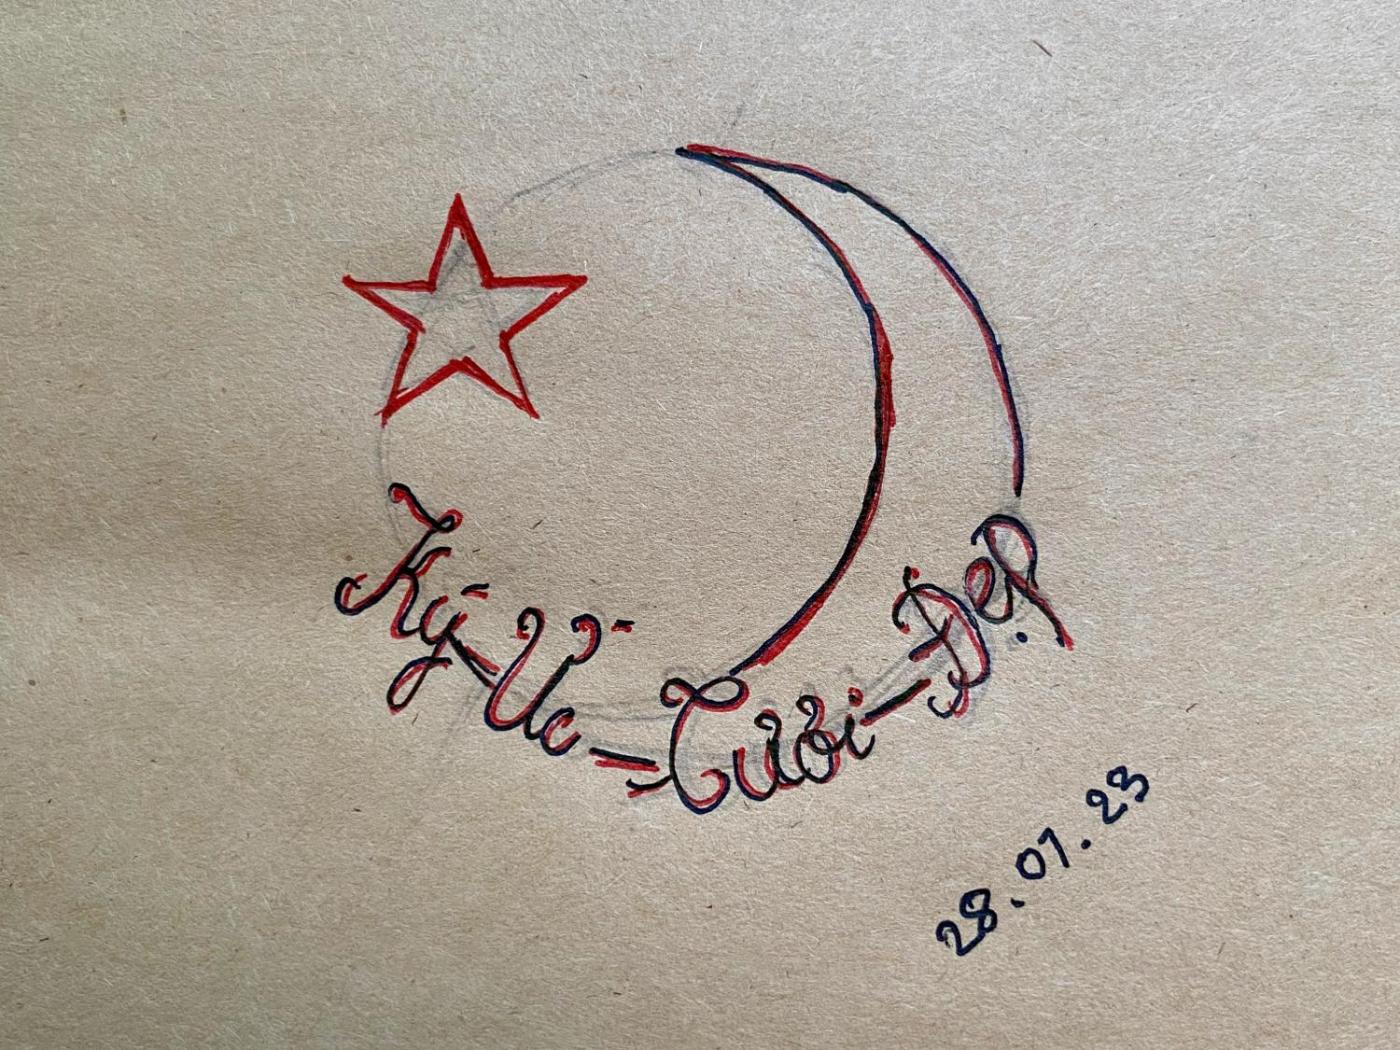 Ký-Ức-Tưởi-Đẹp
28.01.23